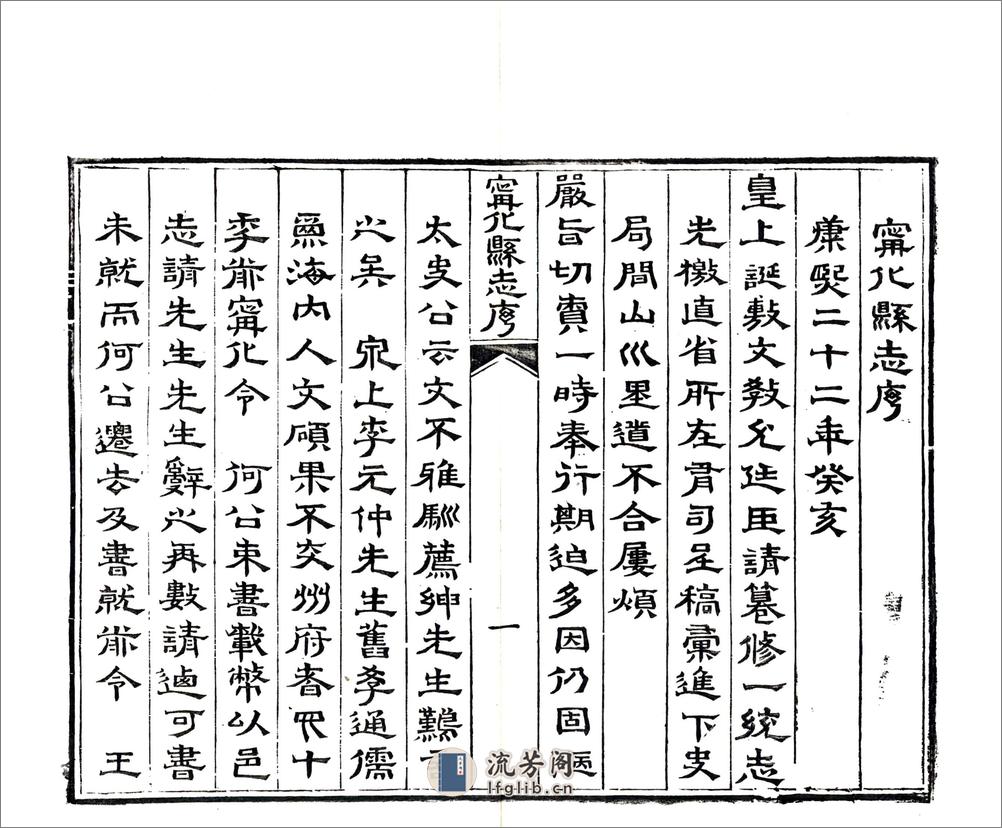 甯化縣志序
康熙二十二年癸亥
皇上誕敷文教允廷臣請纂修一統志
先檄直省所在有司呈稿彙進下史
局間山巛里道不合屢煩
嚴旨切責一時奉行期迫多因仍固陋
甯化縣志序
一
太史公云文不雅馴薦紳先生難言
之矣 泉上李元仲先生舊孝通儒
爲海內人文碩果不交州府者四十
季前甯化令 何公束書載幣以邑
志請先生先生辭之再數請迺可書
未就而何公遷去及書就前令 王
流芳阁
lfglib.cn